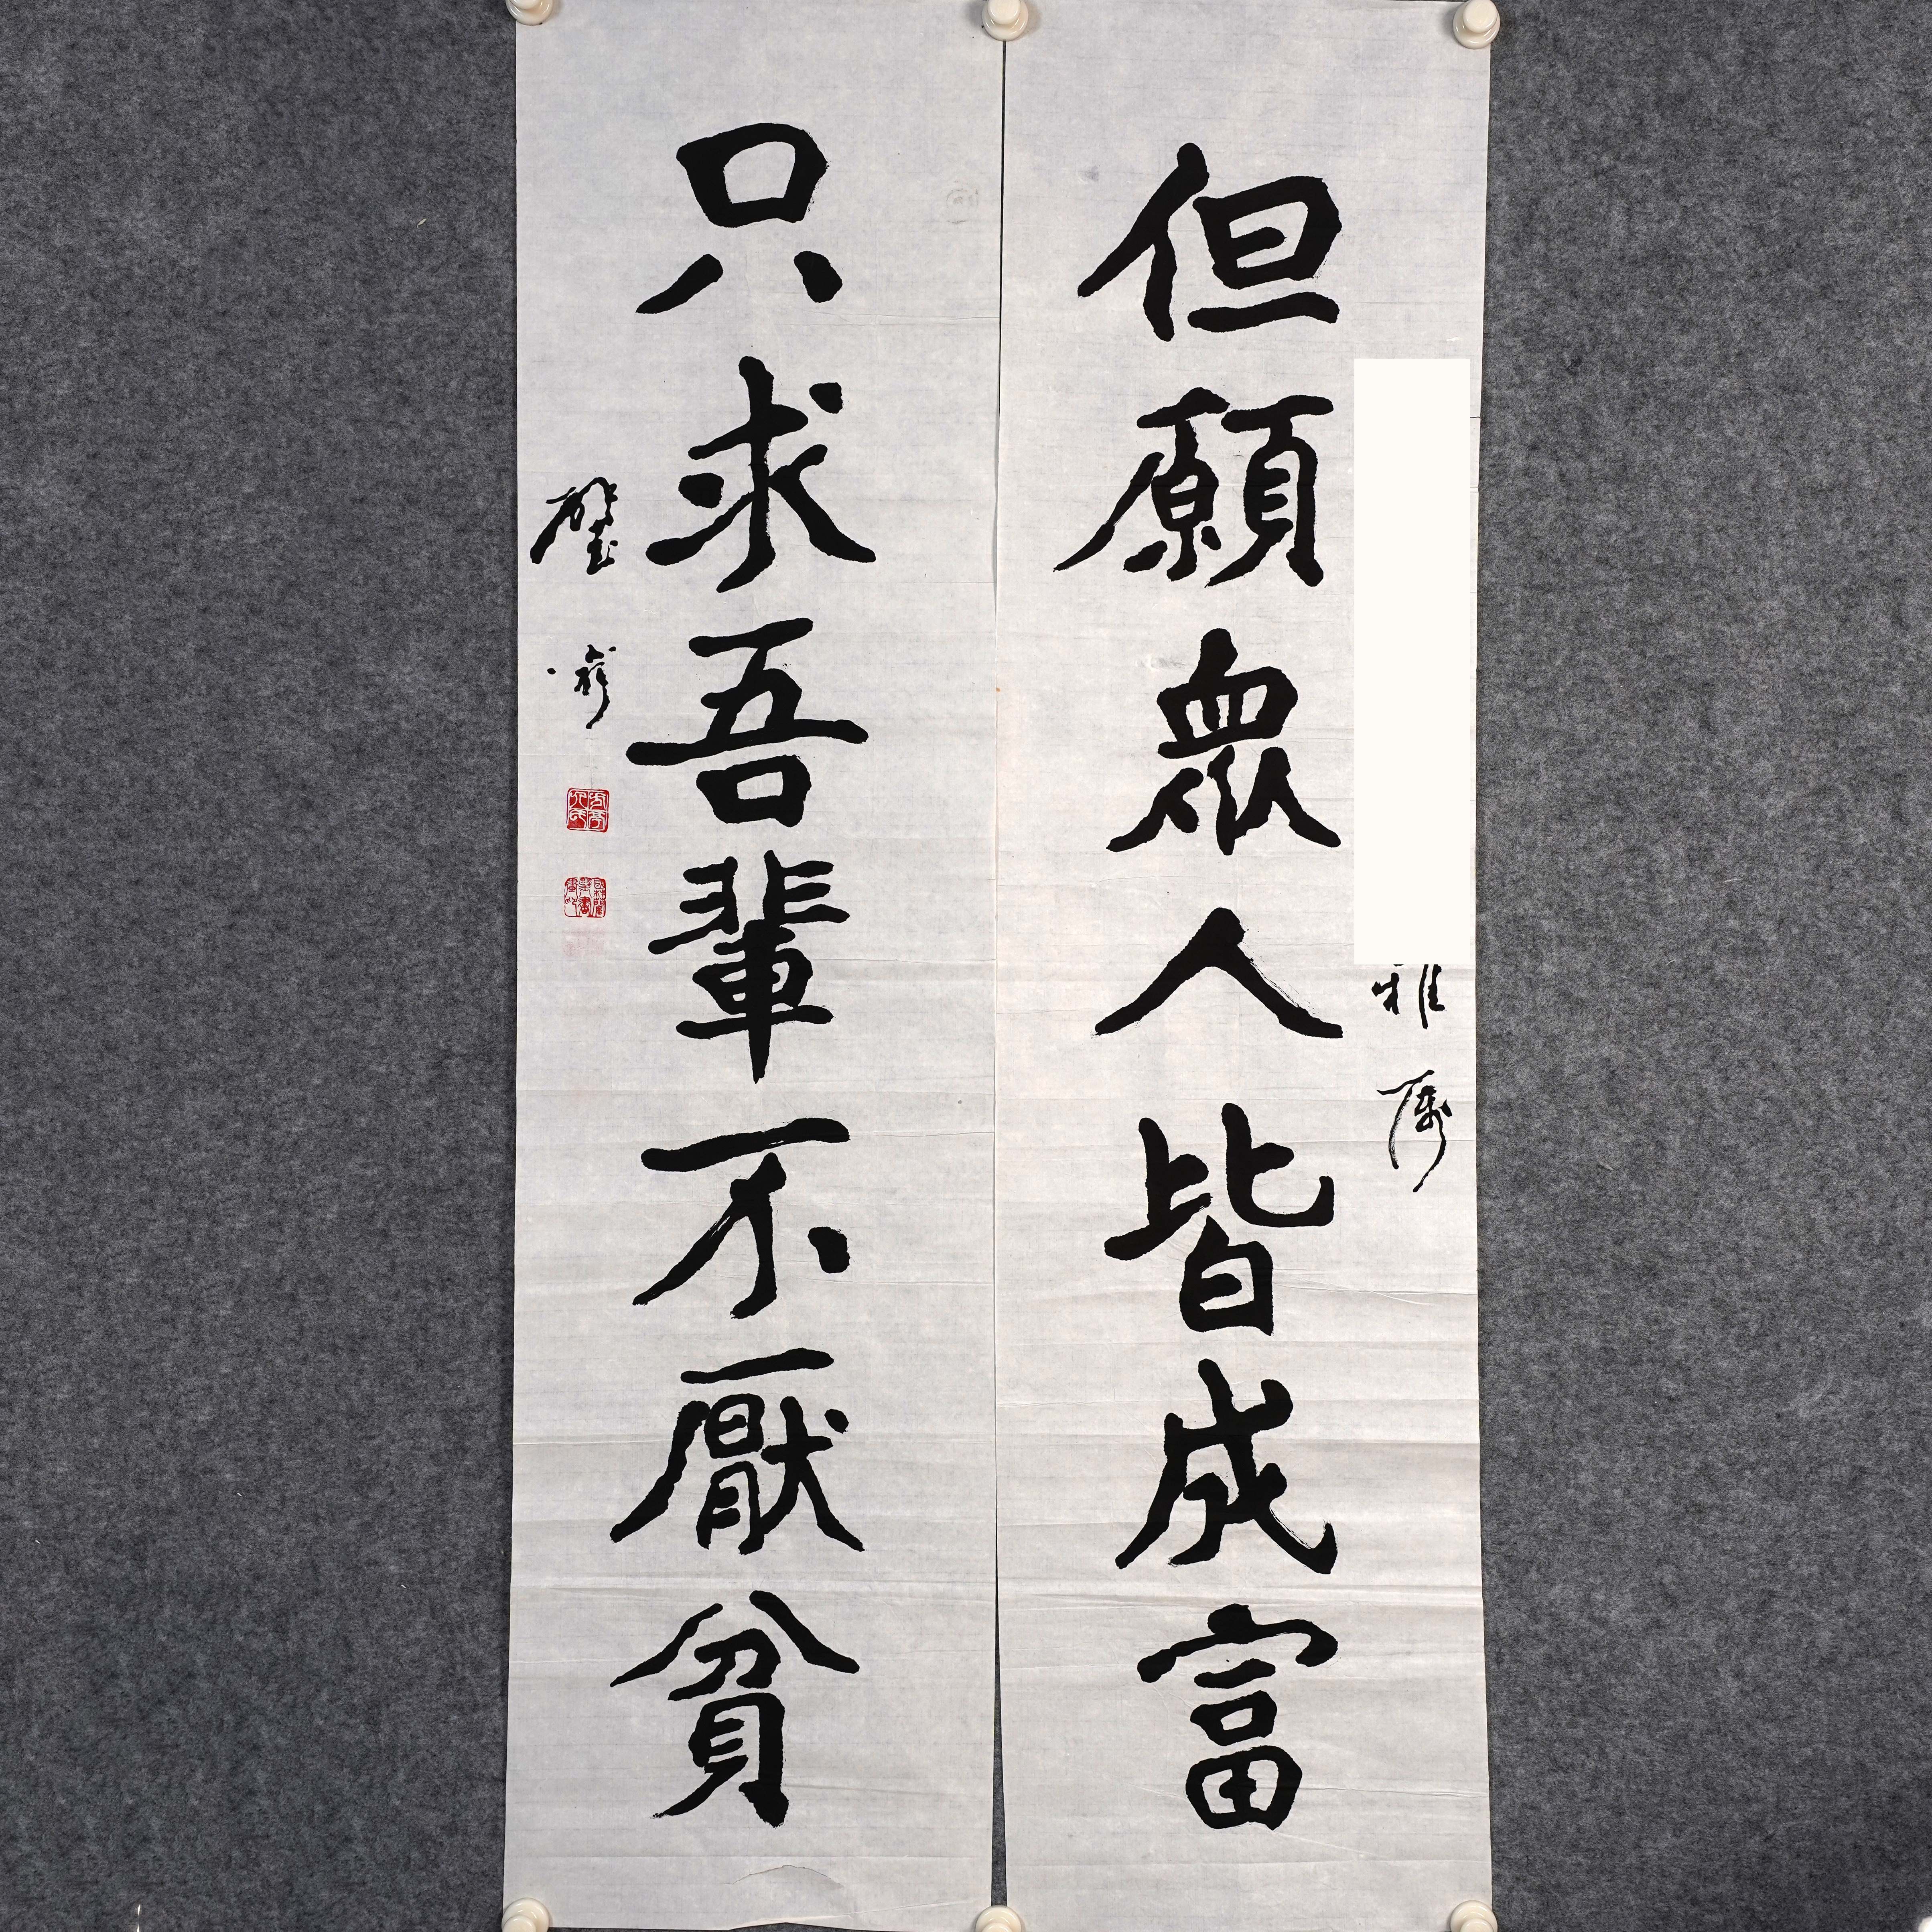 但願眾人皆成富
雅屬
只求吾輩不厭貧